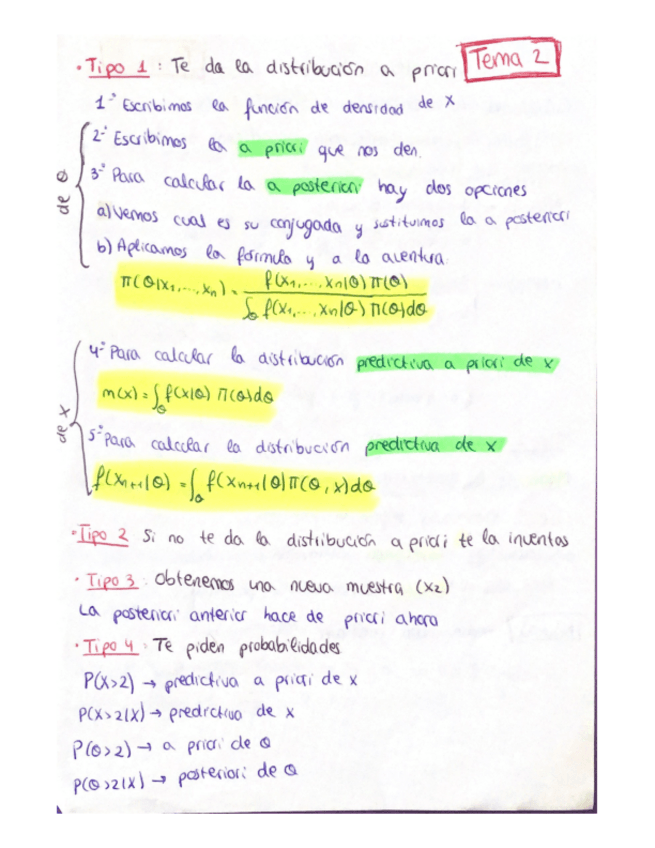 Tema 2
· Tipo 1 : Te da la distribución a priori
1º Escribimos la función de densidad de x
de θ
2º Escribimos la a priori que nos den.
3º Para calcular la a posteriori hay dos opciones
a) Vemos cual es su conjugada y sustituimos la a posteriori
b) Aplicamos la fórmula y a la aventura.
π(θ|x₁,...,xₙ) = f(x₁,...,xₙ|θ) π(θ) / ∫_θ f(x₁,...,xₙ|θ) π(θ)dθ
de x
4º Para calcular la distribución predictiva a priori de x
m(x) = ∫_θ f(x|θ) π(θ)dθ
5º Para calcular la distribución predictiva de x
f(xₙ₊₁|θ) = ∫_θ f(xₙ₊₁|θ) π(θ,x)dθ
· Tipo 2 Si no te da la distribución a priori te la inventas
· Tipo 3 : Obtenemos una nueva muestra (x₂)
La posteriori anterior hace de priori ahora
· Tipo 4 : Te piden probabilidades
P(x>2) → predictiva a priori de x
P(x>2|x) → predictiva de x
P(θ>2) → a priori de θ
P(θ>2|x) → posteriori de θ